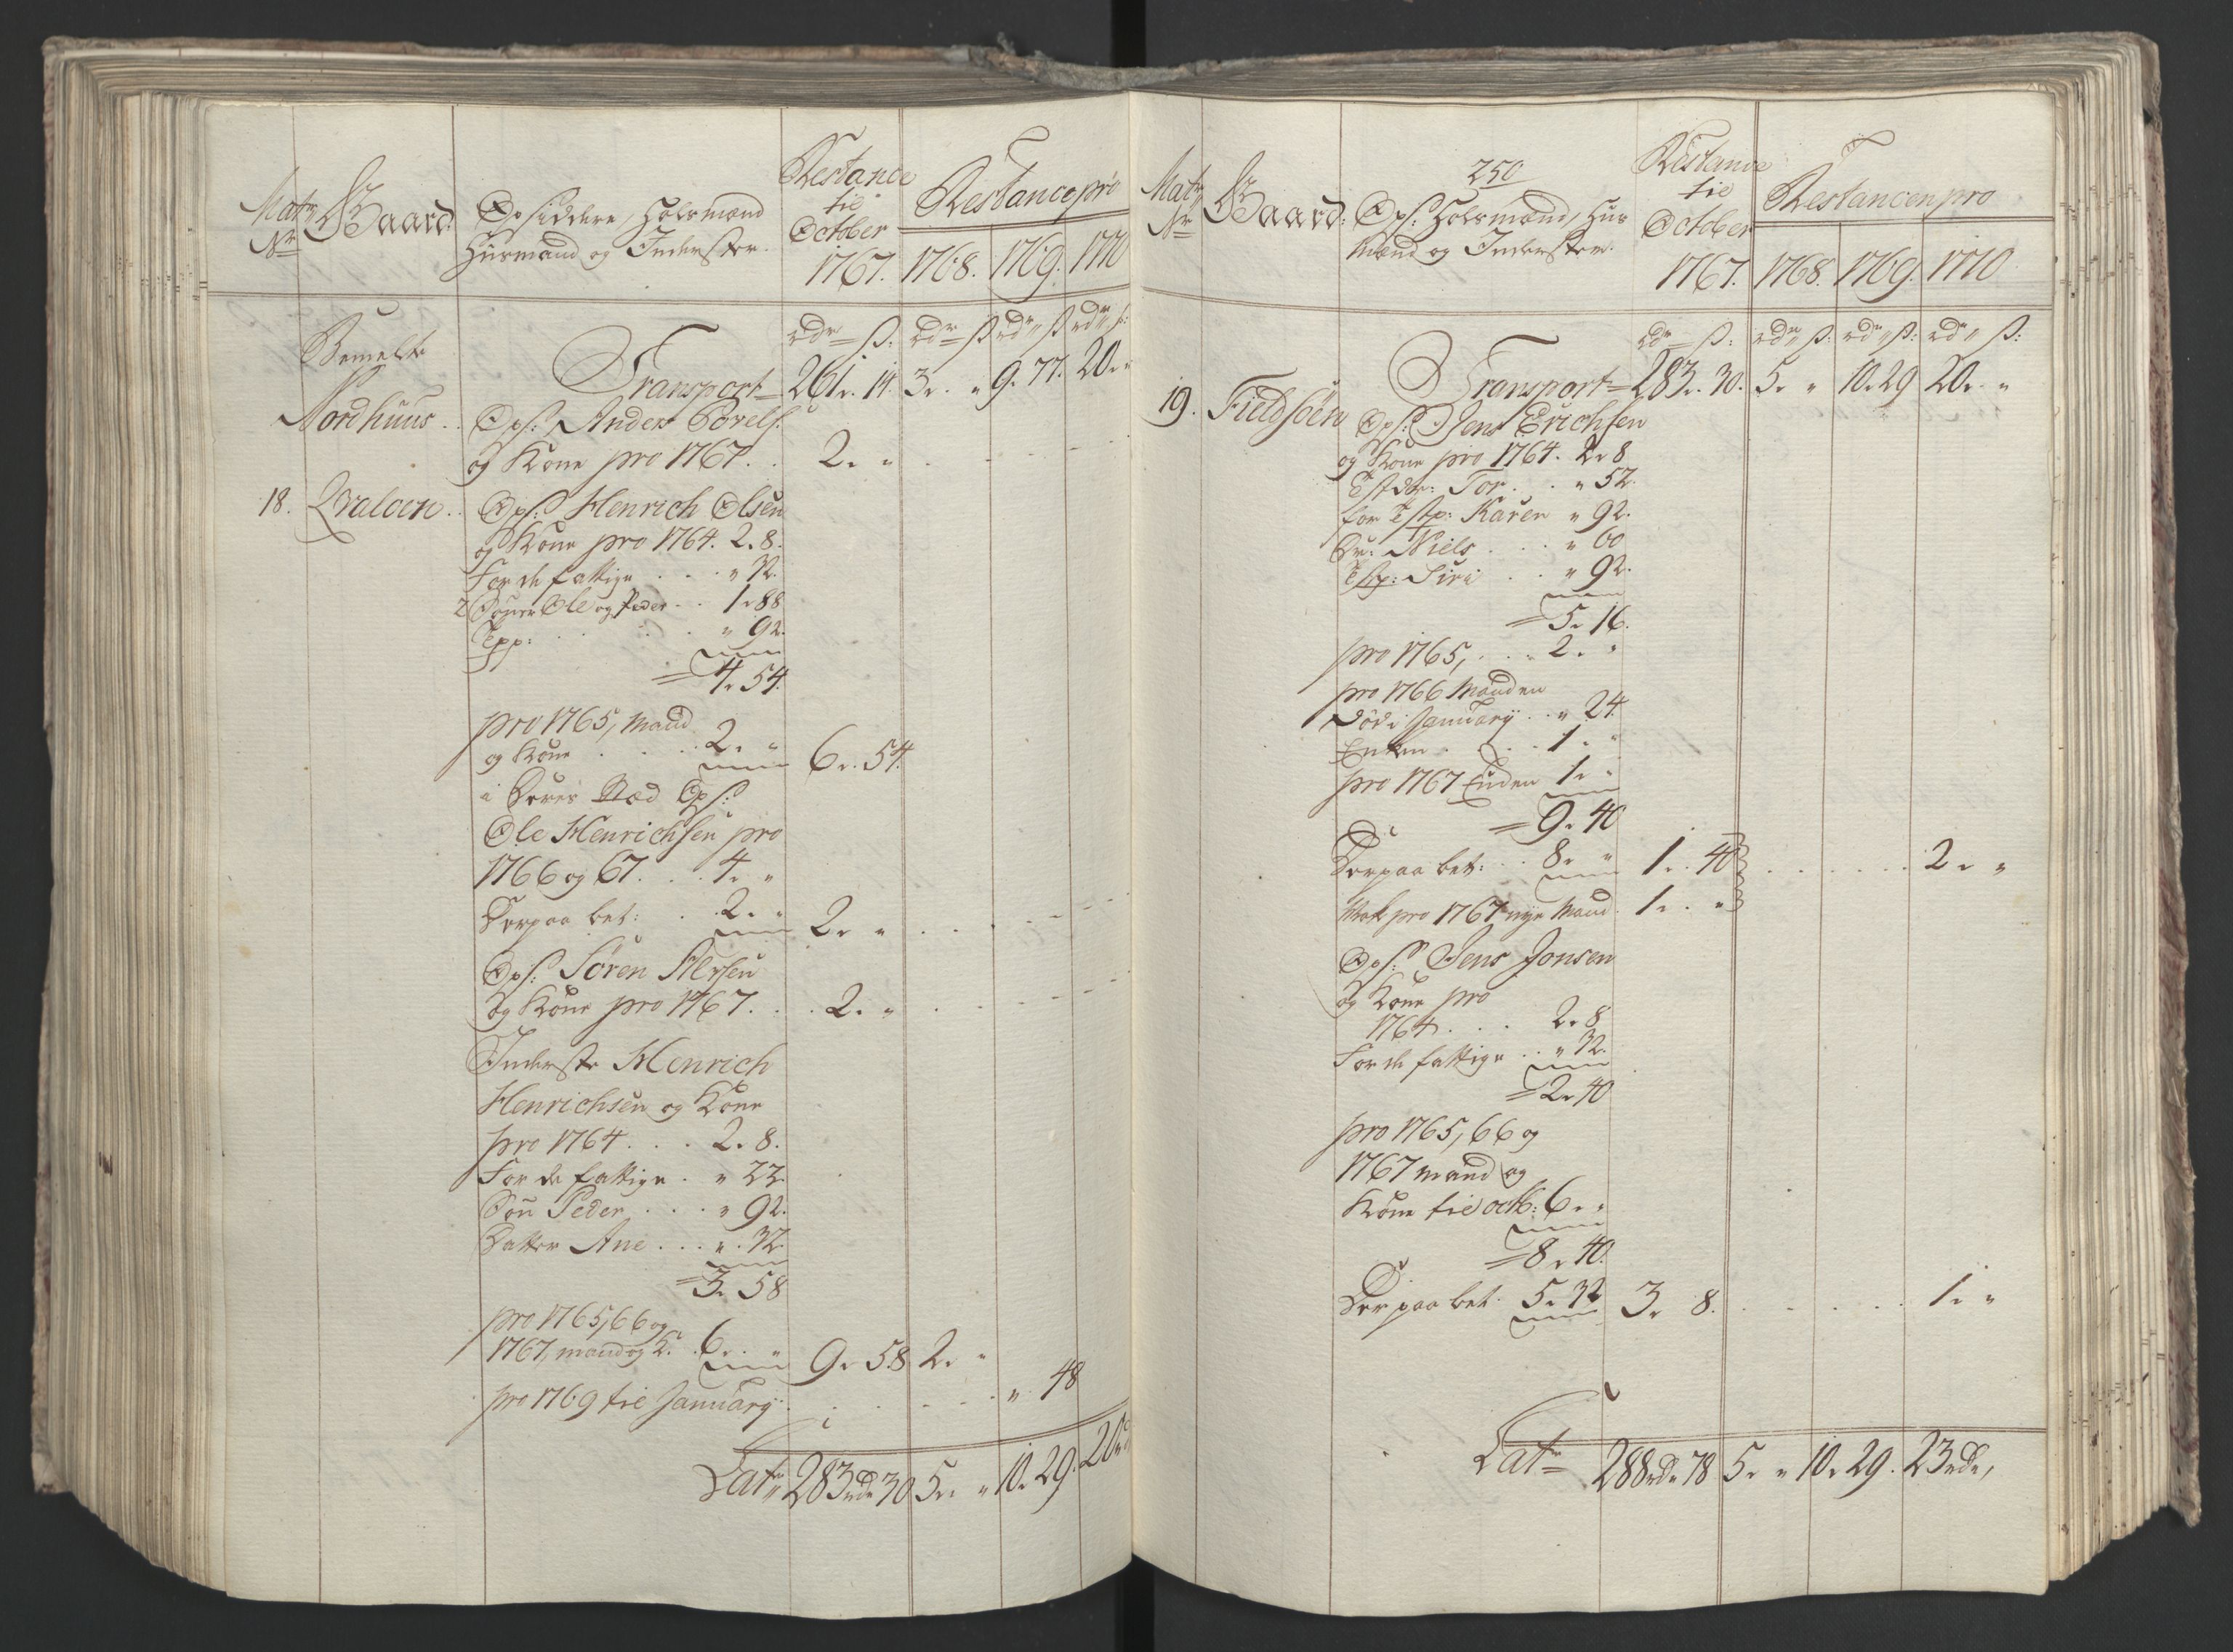 Matr Nr
Gaard:
Opsiddere, Holsmænd
Huusmænd og Inderster.
Restance
til
October
1767.
Restance pro
1768. 1769. 1770
rdr ß: rdr ß rdr ß rdr ß:
Bemelte
Nordhuus
Transport 261 r. 14. 3 r. " 9. 77. 20 r. "
Ops: Anders Povels:
og Kone pro 1767. . 2. "
18. Qvaloen. Ops: Henrich Olsen
og Kone pro 1764. 2. 8.
For de fattige . . . " 32.
2 Sønner Ole og Peder . . 1. 88
Tpp: . . . " 92.
= 4. 54.
pro 1765, Mand
og Kone . . . 2. " 6 r. 54.
i Deres Stæd Ops:
Ole Henrichsen pro
1766 og 67. . . 4. "
Derpaa bet: . . 2. " 2 r "
Ops: Søren
og Kone pro 1767. . . 2. "
Inderste Henrich
Henrichsen og Kone
pro 1764. . . . 2. 8.
For de fattige . " 22.
Søn Peder . . . " 92.
Datter Ane . . . " 32
= 3. 58
pro 1765, 66 og
1767, mand og K. 6 r. " 9 r 58 2 r. "
pro 1769 til January . . . " 48
Latr 283 rd 30 5 r. " 10. 29. 20 r
250
Matr Nr
Gaard:
Ops: Holsmænd, Huus
mænd og Inderster.
Restance
til
October
1767.
Restancen pro
1768. 1769. 1770
rdr ß: rdr ß: rdr ß: rdr ß:
Transport 283 r. 30. 5 r. " 10. 29 20 r. "
19. Fieldsøen Ops: Jens Erichsen
og Kone pro 1764. 2. 8
Tstdr: Tor . . " 52.
for Tstp: Karen " 92.
Dr: Niels . . . " 60
Tstp: Siri . . " 92.
= 5. 16.
pro 1765, . . . 2. "
pro 1766 Manden
død i January . . " 24.
Enken . . . 1. "
pro 1767 Enken 1. "
= 9. 40
Derpaa bet: . . 8. " 1. 40 . . . 2. "
pro 1767 nye Mand 1. "
Ops: Jens Jonsen
og Kone pro
1764. . . . 2. 8
For de fattige . . " 32.
= 2. 40
pro 1765, 66 og
1767 mand og
Kone til octb: 6. "
= 8. 40.
Derpaa bet: 5. 32 3. 8. . . . 1. "
Latr 288 rd. 78 5. " 10. 29. 23 rd.,